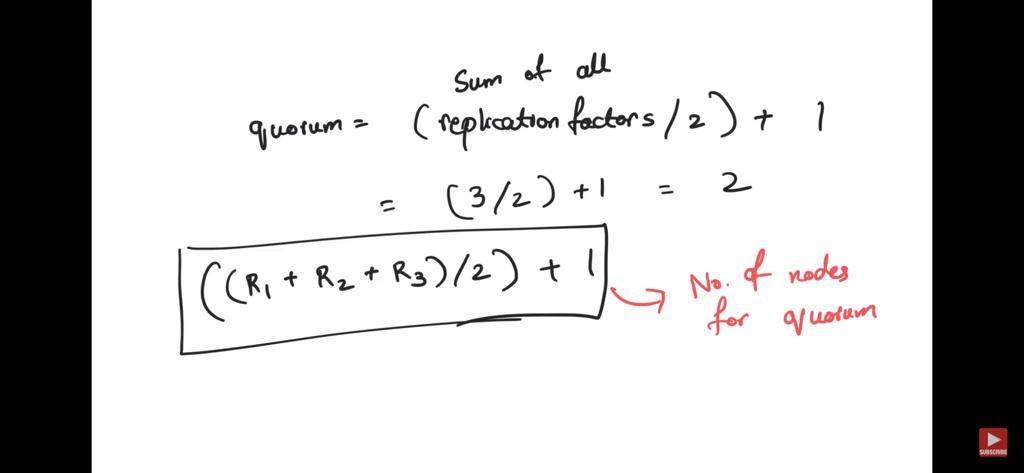 Sum of all
quorum = (replication factors/2) + 1
= (3/2) + 1 = 2
((R₁ + R₂ + R₃)/2) + 1
No. of nodes
for quorum
SUBSCRIBE